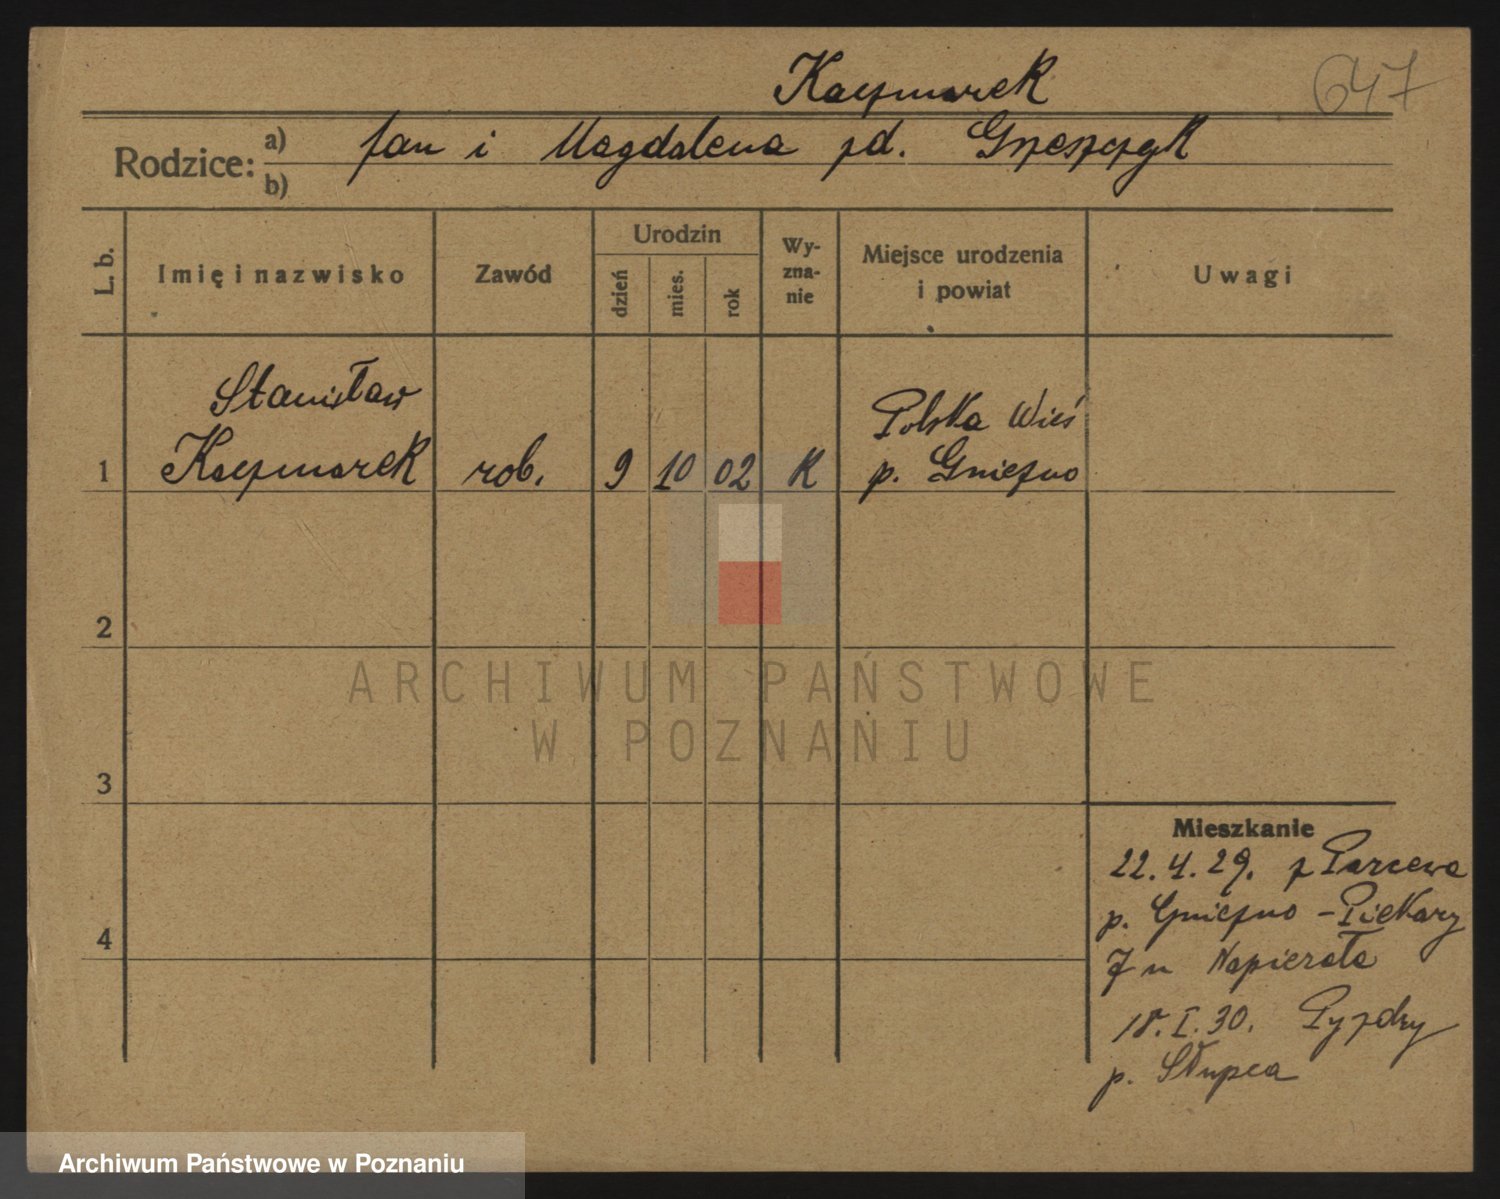 Kaczmarek
647
Rodzice: a) Jan i Magdalena zd. Grzeszczyk
b)
L. b.
Imię i nazwisko
Zawód
Urodzin
dzień
mies.
rok
Wy-
zna-
nie
Miejsce urodzenia
i powiat
Uwagi
Stanisław
Polska Wieś
1 Kaczmarek rob. 9 10 02 K p. Gniezno
2
ARCHIWUM PAŃSTWOWE
W POZNANIU
3
Mieszkanie
22.4.29. z Parcewa
p. Gniezno - Piekary
4
7 u Napierała
18.I.30. Pyzdry
p. Słupca
Archiwum Państwowe w Poznaniu